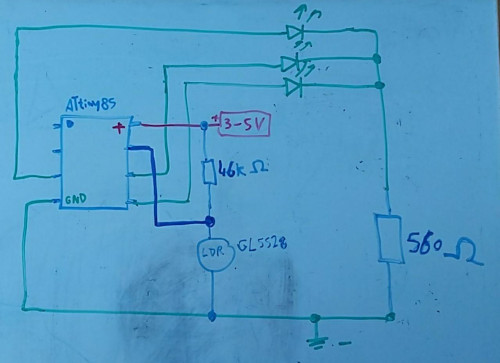 ATtiny85
+
+ 3-5V
46k Ω
GND
LDR GL5528
560 Ω